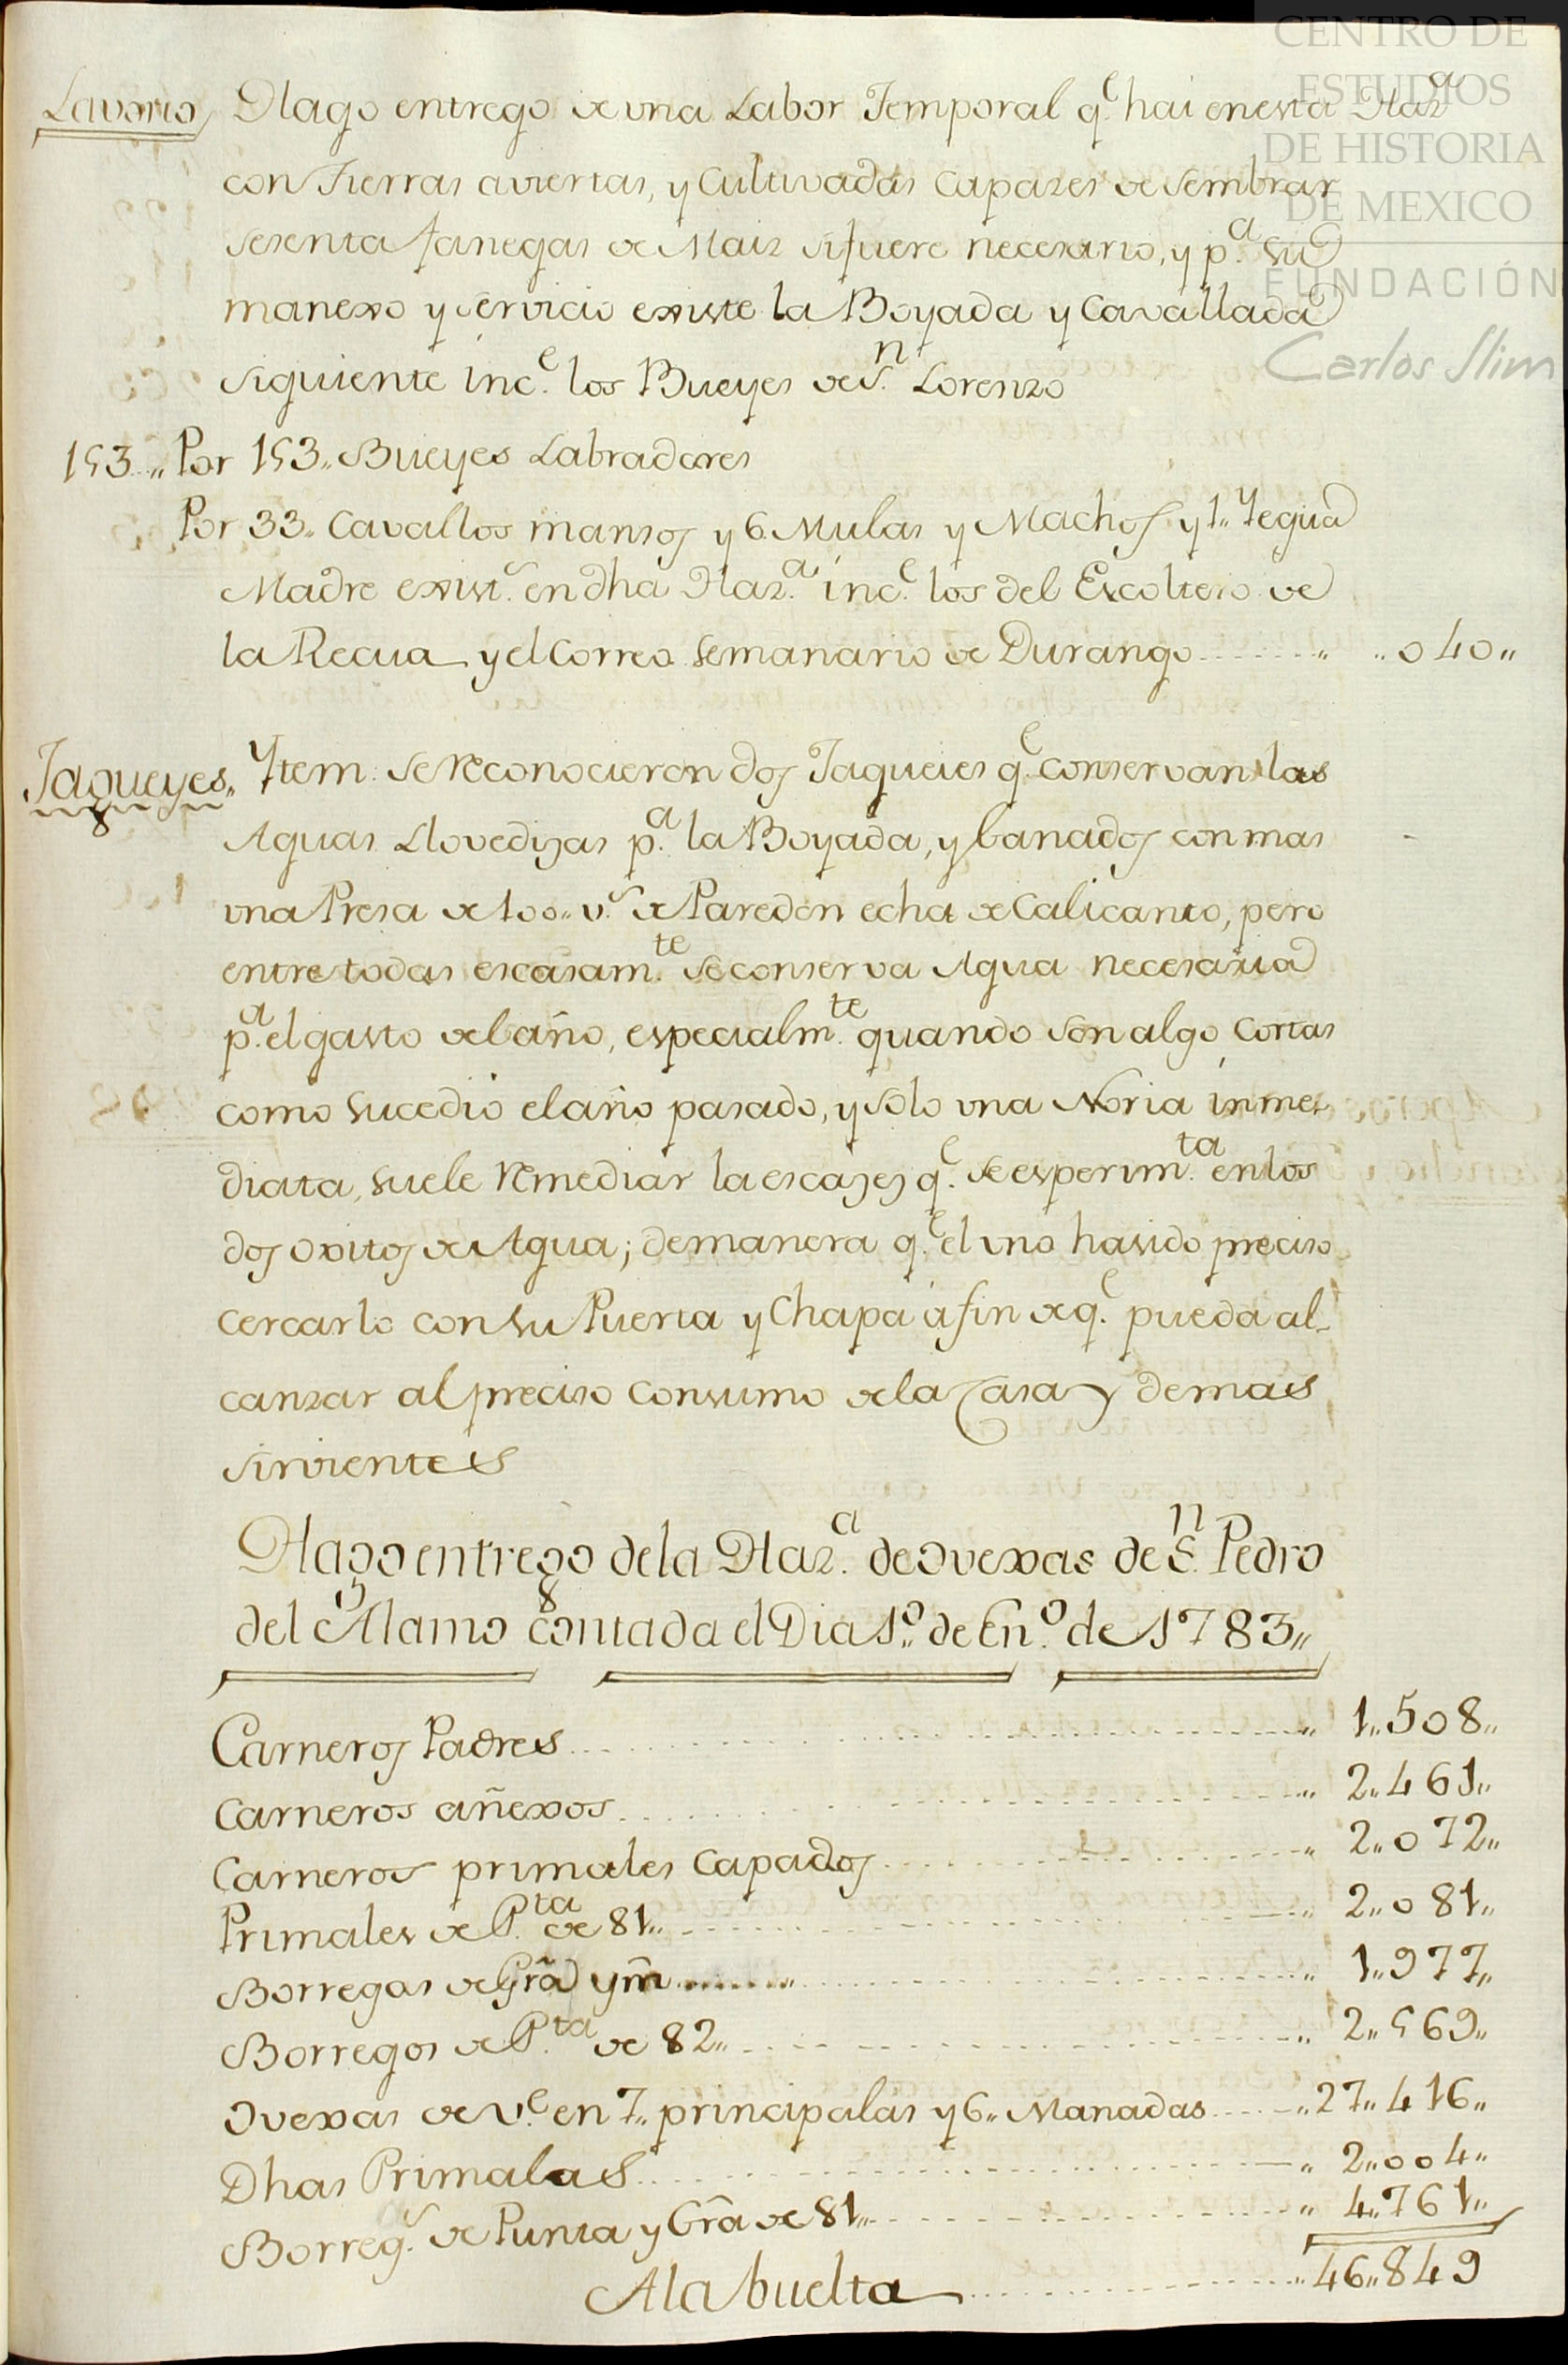 CENTRO DE
ESTUDIOS
DE HISTORIA
DE MEXICO
FUNDACIÓN
Carlos Slim
Lavorio Hago entrego de vna Labor Temporal q.e hai en esta Haz.a
con Tierras aviertas, y Cultivadas Capazes de Sembrar
sesenta fanegas de Maiz si fuere necesario, y p.a su
manexo y servicio existe la Boyada y Cavallada
siguiente inc.e los Bueyes de S.n Lorenzo
153,, Por 153,, Bueyes Labradores
Por 33,, Cavallos mansos y 6 Mulas y Machos y 1,, Yegua
Madre exist.s en dha Haz.a inc.e los del Escoltero de
la Recua y el Correo Semanario de Durango ,, ,,040,,
Jagueyes,, Ytem Se reconocieron dos Jagueies q.e conservan las
Aguas Llovedizas p.a la Boyada, y banados con mas
vna Presa de 100,, v.s de Paredon echa de Calicanto, pero
entre todas escasam.te se conserva Agua necesaria
p.a el gasto del año, especialm.te quando son algo cortas
como sucedio el año pasado, y solo vna Noria inme-
diata, suele remediar la escases q.e se esperim.ta en los
dos oxitos de Agua; demanera q.e el vno ha sido preciso
cercarlo con su Puerta y Chapa á fin de q.e pueda al-
canzar al preciso consumo de la Casa y demas
sirvientes
Hago entrego de la Haz.a de Ovexas de S.n Pedro
del Alamo contada el Dia 1.o de En.o de 1783,,
Carneros Padres ,, 1,,508,,
Carneros añexos ,, 2,,461,,
Carneros primales Capados ,, 2,,072,,
Primales de P.ta de 81,, ,, 2,,081,,
Borregas de Gra y m ,, 1,,977,,
Borregos de P.ta de 82,, ,, 2,,569,,
Ovexas de v.e en 7,, principalas y 6,, Manadas ,,27,,416,,
Dhas Primalas ,, 2,,004,,
Borreg.s de Punta y Gra de 81,, ,, 4,,761,,
A la buelta ,,46,,849